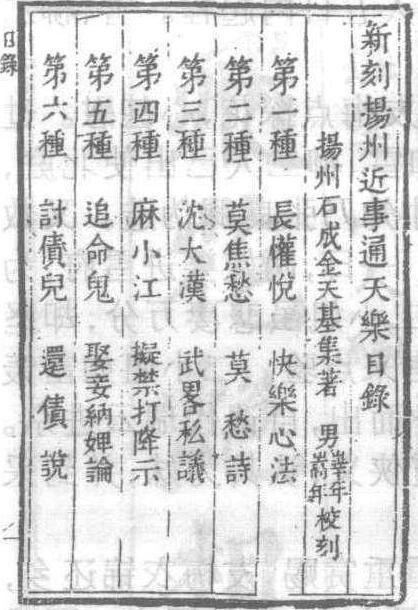 新刻揚州近事通天樂目錄
揚州石成金天基集著 男年嵩年校刻
第一種 長懽悅 快樂心法
第二種 莫焦愁 莫愁詩
第三種 沈大漢 武畧私議
第四種 麻小江 擬禁打降示
第五種 追命鬼 娶妾納婢論
第六種 討債兒 還債說
目錄